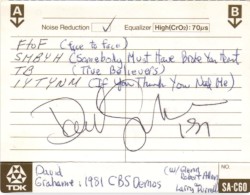 A
B
Noise Reduction ✓ Equalizer High(CrO2) 70µs
FtoF (Face to Face)
SMBYH (Somebody Must Have Broke Your Heart
TB (True Believers)
IYTYNM (If You Think You Need Me)
David
Grahame: 1981 CBS Demos
(w/ Glenn
Robert Allen
Larry
NO.
TDK
SA-C60